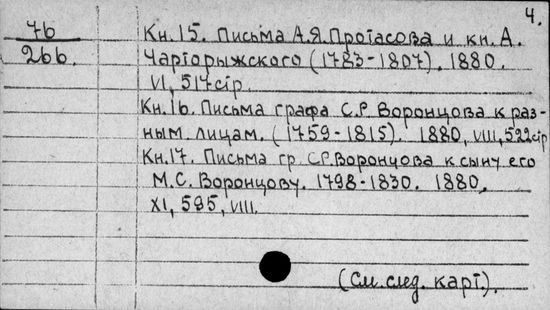 4.
7б
26б.
Кн. 15. Письма А.Я. Протасова и кн. А.
Чарторыжского (1783-1807). 1880.
VI, 517 стр.
Кн. 16. Письма графа С.Р. Воронцова к раз-
ным лицам. (1759-1815). 1880, VIII, 522 стр
Кн. 17. Письма гр. С.Р. Воронцова к сыну его
М.С. Воронцову. 1798-1830. 1880,
XI, 595, VIII.
(См. след. карт.).